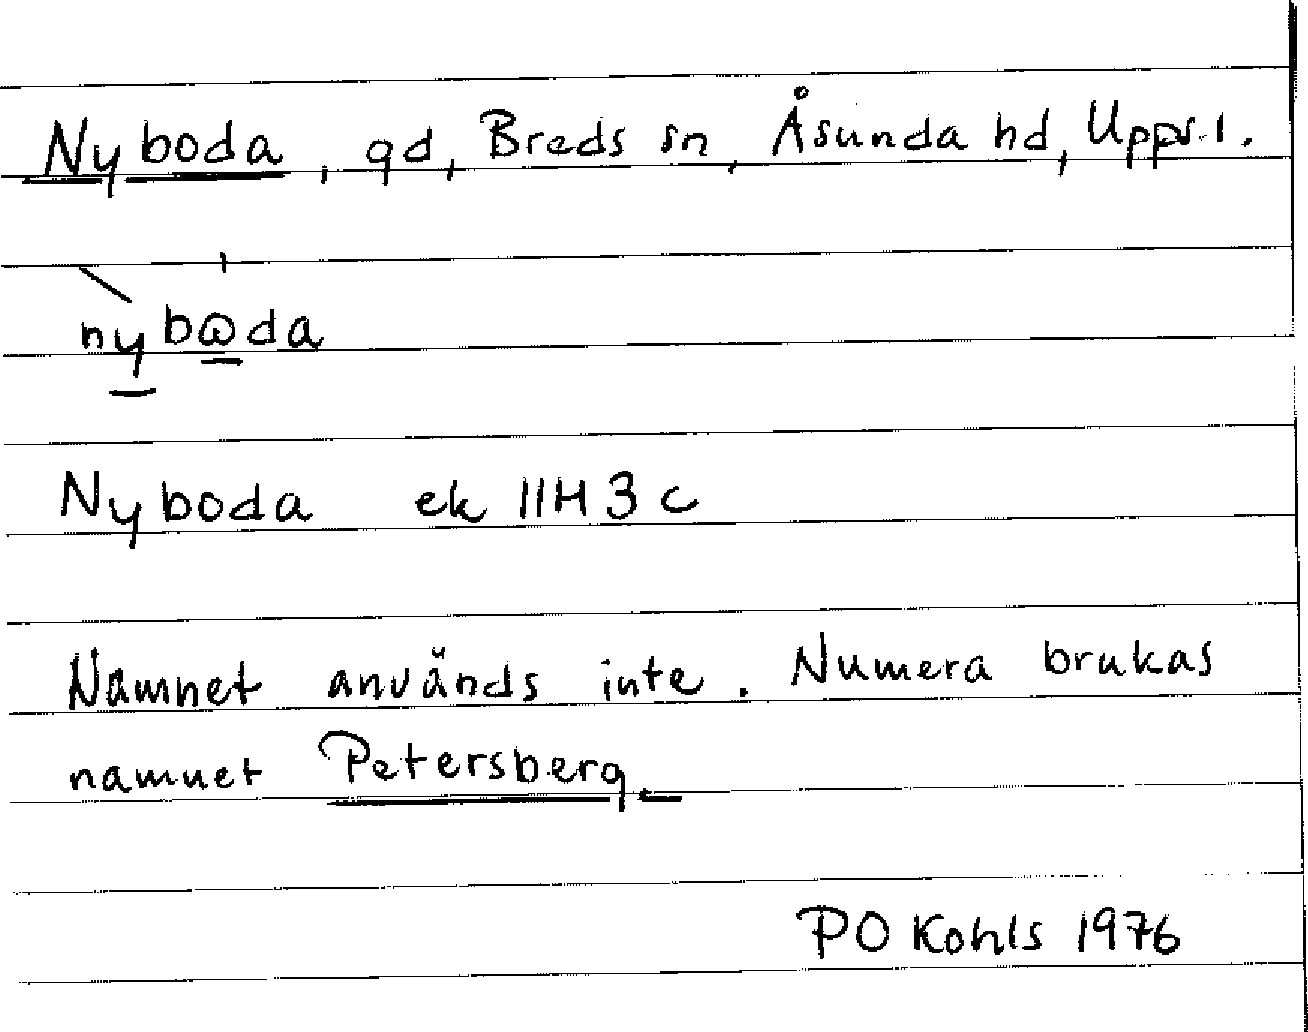 Nyboda, gd, Breds sn, Åsunda hd, Upps.l.
nybωda
Nyboda ek 11H 3 c
Namnet används inte. Numera brukas
namnet Petersberg.
PO Kohls 1976